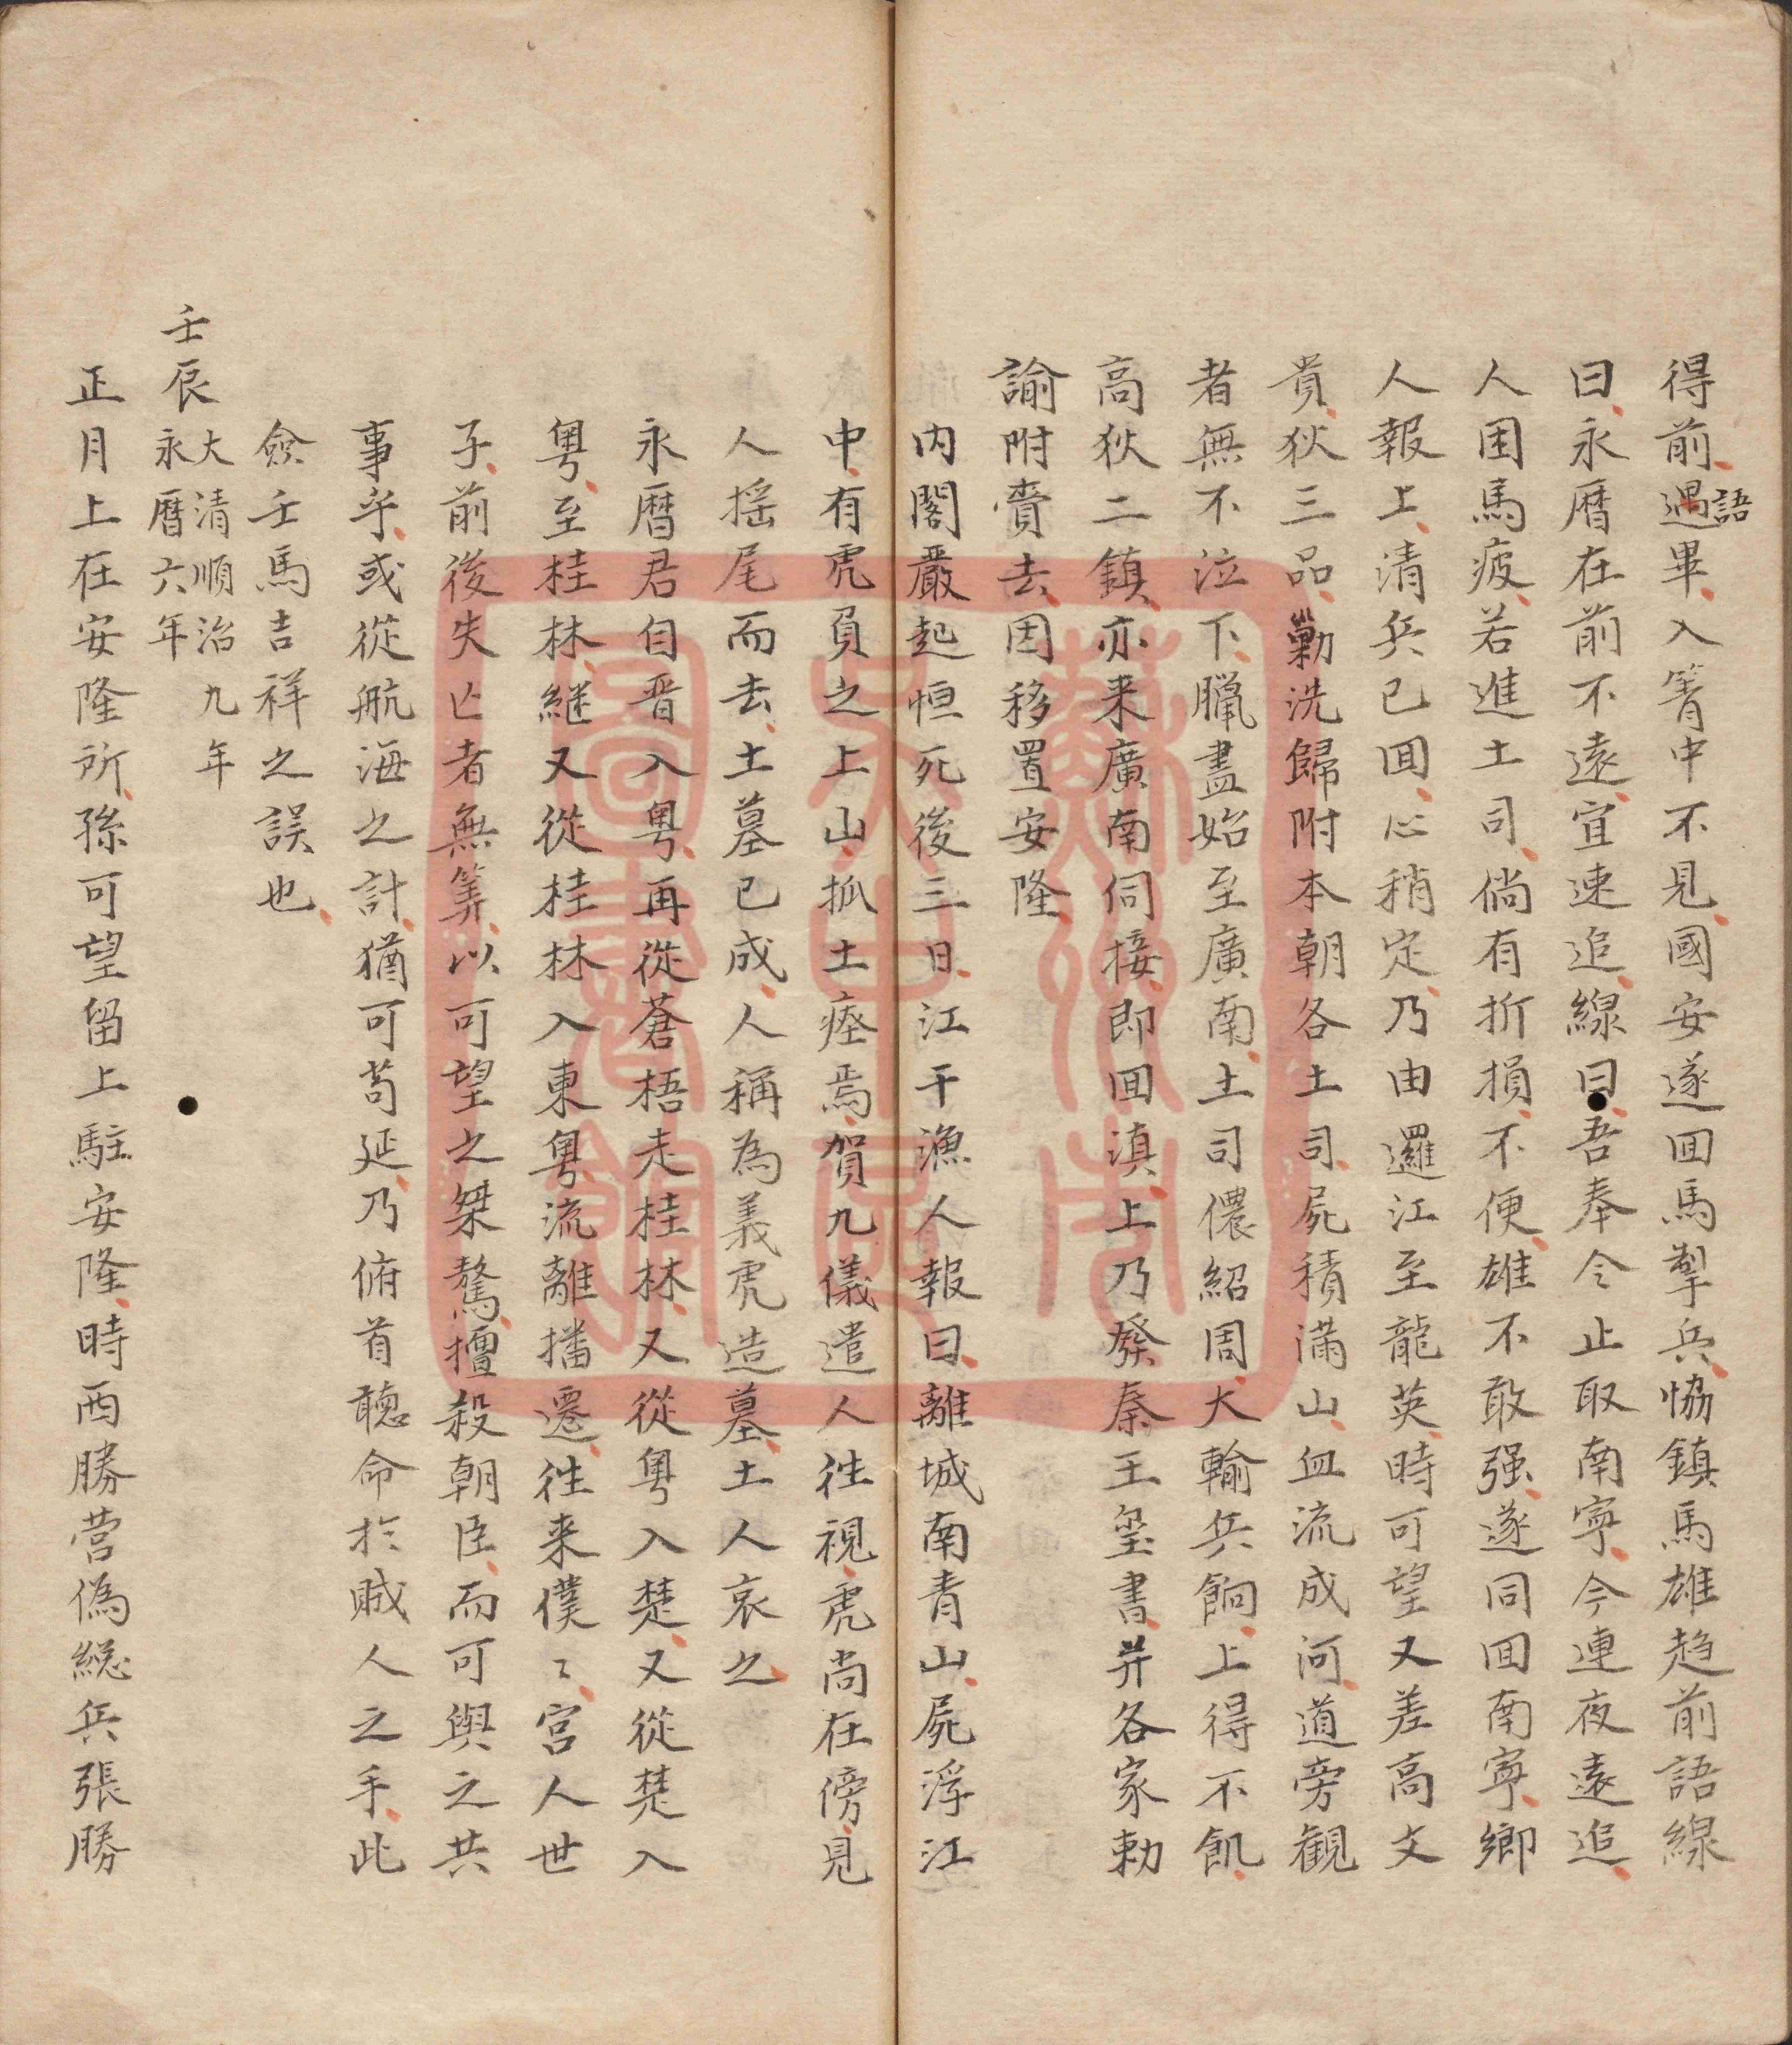 得前遇語畢入箐中不見國安遂囬馬掣兵恊鎮馬雄趋前語線
曰永曆在前不遠宜速追線曰吾奉令止取南寧今連夜遠追
人困馬疲若進土司倘有折損不便雄不敢强遂同囬南寧鄉
人報上清兵已囬心稍定乃由邏江至龍英時可望又差高文
貴狄三品勦洗歸附本朝各土司屍積滿山血流成河道旁觀
者無不泣下臘盡始至廣南土司儂紹周大輸兵餉上得不飢
高狄二鎮亦来廣南伺接即囬滇上乃發秦王璽書并各家勅
諭附賫去因移置安隆
内閣嚴起恒死後三日江干漁人報曰離城南青山屍浮江
中有虎負之上山抓土瘞焉賀九儀遣人徃視虎尚在傍見
人摇尾而去土墓已成人稱為義虎造墓土人哀之
永曆君自晋入粤再從蒼梧走桂林又從粤入楚又從楚入
粤至桂林継又從桂林入東粤流離播遷徃来僕〻宫人世
子前後失亡者無筭以可望之桀驁擅殺朝臣而可與之共
事乎或從航海之計猶可苟延乃俯首聽命於賊人之手此
僉壬馬吉祥之誤也
壬辰 大清順治九年
永曆六年
正月上在安隆所孫可望留上駐安隆時西勝营偽総兵張勝
蘇州市
人民
圖書館